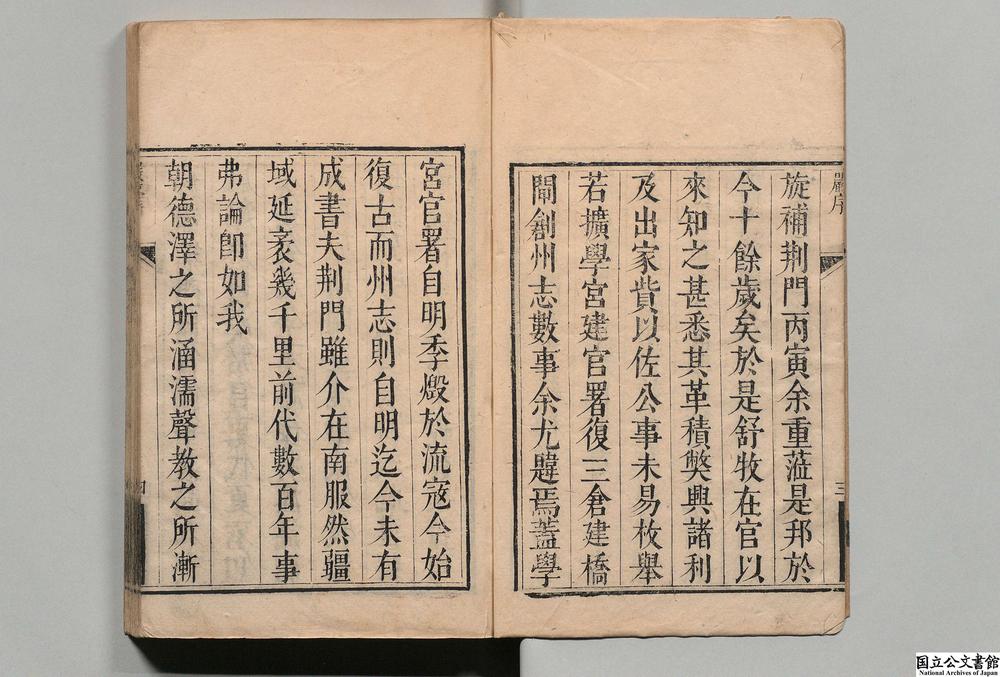 嚴序
旋補荆門丙寅余重蒞是邦於
今十餘歲矣於是舒牧在官以
來知之甚悉其革積獘興諸利
及出家貲以佐公事未易枚舉
若擴學宮建官署復三倉建橋
閘創州志數事余尤韙焉蓋學
三
宮官署自明季燬於流寇今始
復古而州志則自明迄今未有
成書夫荆門雖介在南服然疆
域延袤幾千里前代數百年事
弗論卽如我
朝德澤之所涵濡聲教之所漸
四
国立公文書館
National Archives of Japan